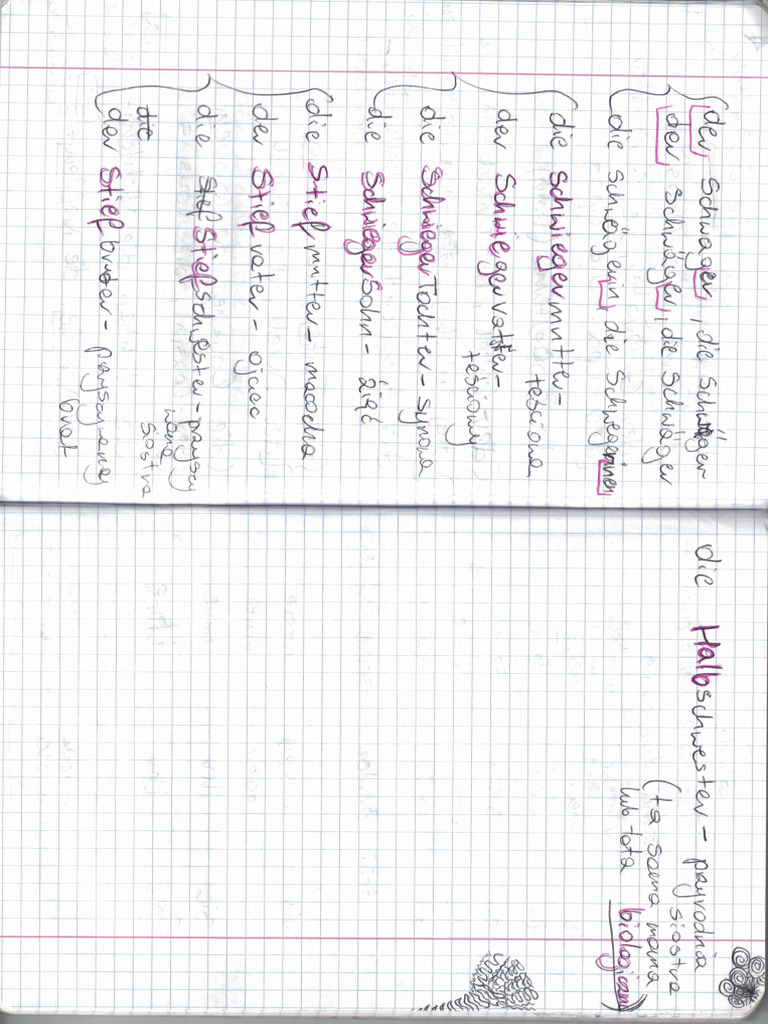 der Schwager, die Schwäger
der Schwäger, die Schwäger
die Schwägerin, die Schwegerinnen
die Schwiegermutter -
teściowa
der Schwiegervater -
teściowy
die SchwiegerTochter - synowa
die SchwiegerSohn - źięć
die Stiefmutter - macocha
der Stiefvater - ojciec
die Stiefschwester - przyszy
wana
siostra
die
der Stiefbruder - przyszywany
brat
die Halbschwester - przyrodnia
siostra
(ta sama mama
lub tata biologiczni)